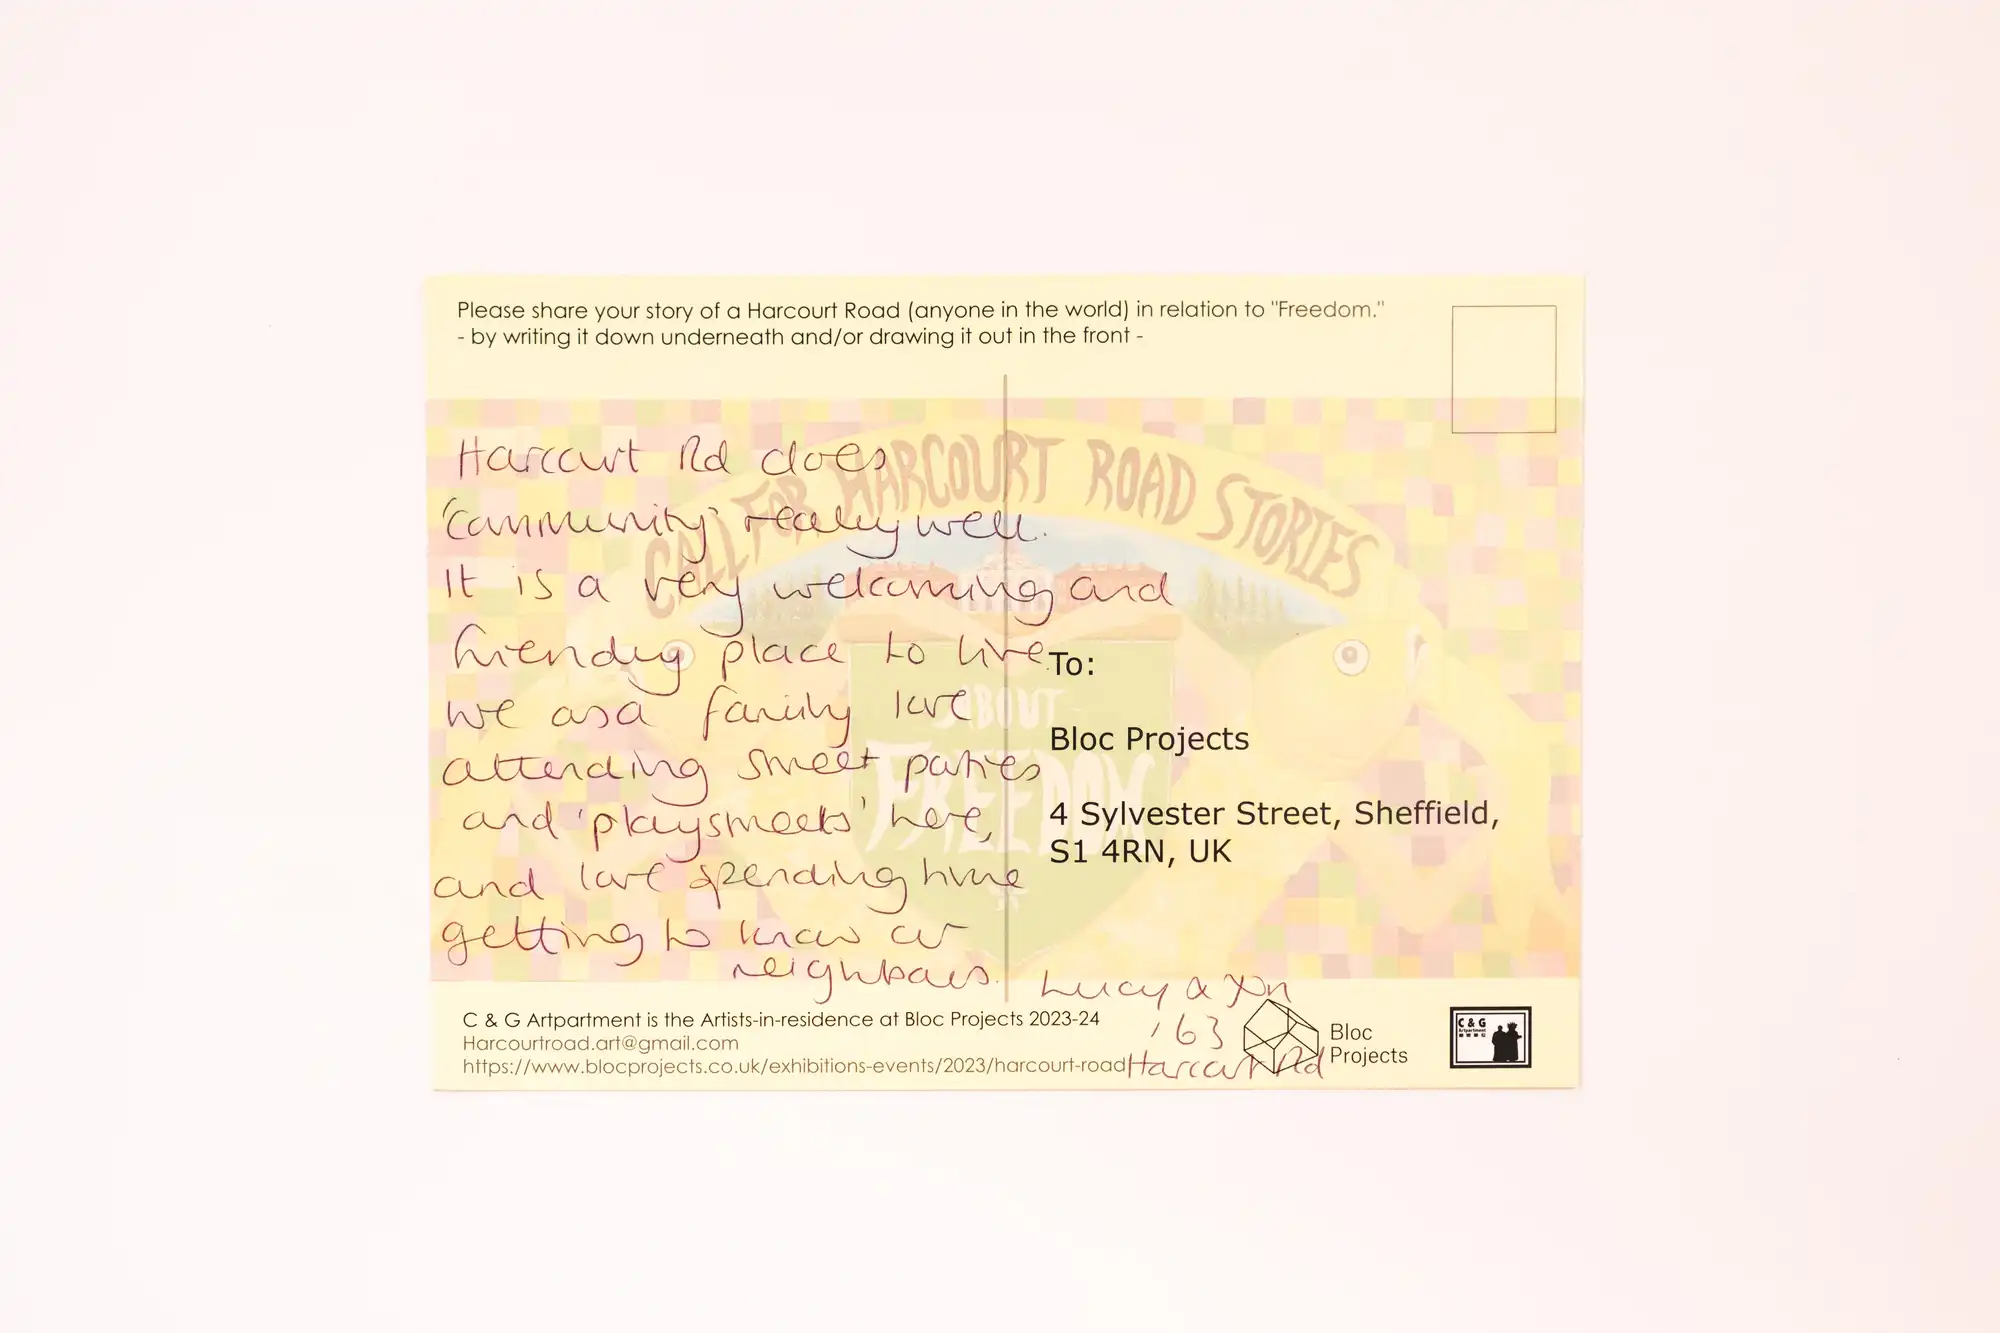 Please share your story of a Harcourt Road (anyone in the world) in relation to "Freedom."
- by writing it down underneath and/or drawing it out in the front -
CALL FOR HARCOURT ROAD STORIES
ABOUT
FREEDOM
Harcourt Rd does
'Community' really well.
It is a very welcoming and
friendly place to live.
We as a family love
attending street parties
and 'playstreets' here,
and love spending time
getting to know our
neighbours.
Lucy &
'63
Harcourt Rd
To:
Bloc Projects
4 Sylvester Street, Sheffield,
S1 4RN, UK
C & G Artpartment is the Artists-in-residence at Bloc Projects 2023-24
Harcourtroad.art@gmail.com
https://www.blocprojects.co.uk/exhibitions-events/2023/harcourt-road
Bloc
Projects
C & G
Artpartment